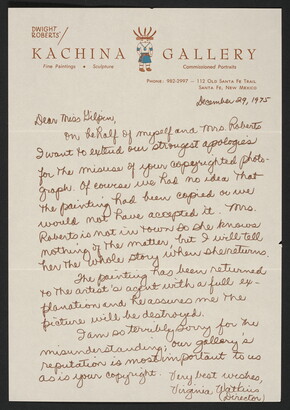 DWIGHT
ROBERTS'
KACHINA GALLERY
Fine Paintings • Sculpture
Commissioned Portraits
PHONE: 982-2997 — 112 OLD SANTA FE TRAIL
SANTA FE, NEW MEXICO
December 29, 1975
Dear Miss Gilpin,
On behalf of myself and Mrs. Roberts
I want to extend our strongest apologies
for the misuse of your copyrighted photo-
graph. Of course we had no idea that
the painting had been copied or we
would not have accepted it. Mrs.
Roberts is not in town so she knows
nothing of the matter, but I will tell
her the whole story when she returns.
The painting has been returned
to the artist's agent with a full ex-
planation and he assures me the
picture will be destroyed.
I am so terribly sorry for the
misunderstanding; our gallery's
reputation is most important to us
as is your copyright.
Very best wishes,
Virginia Watkins
(Director)